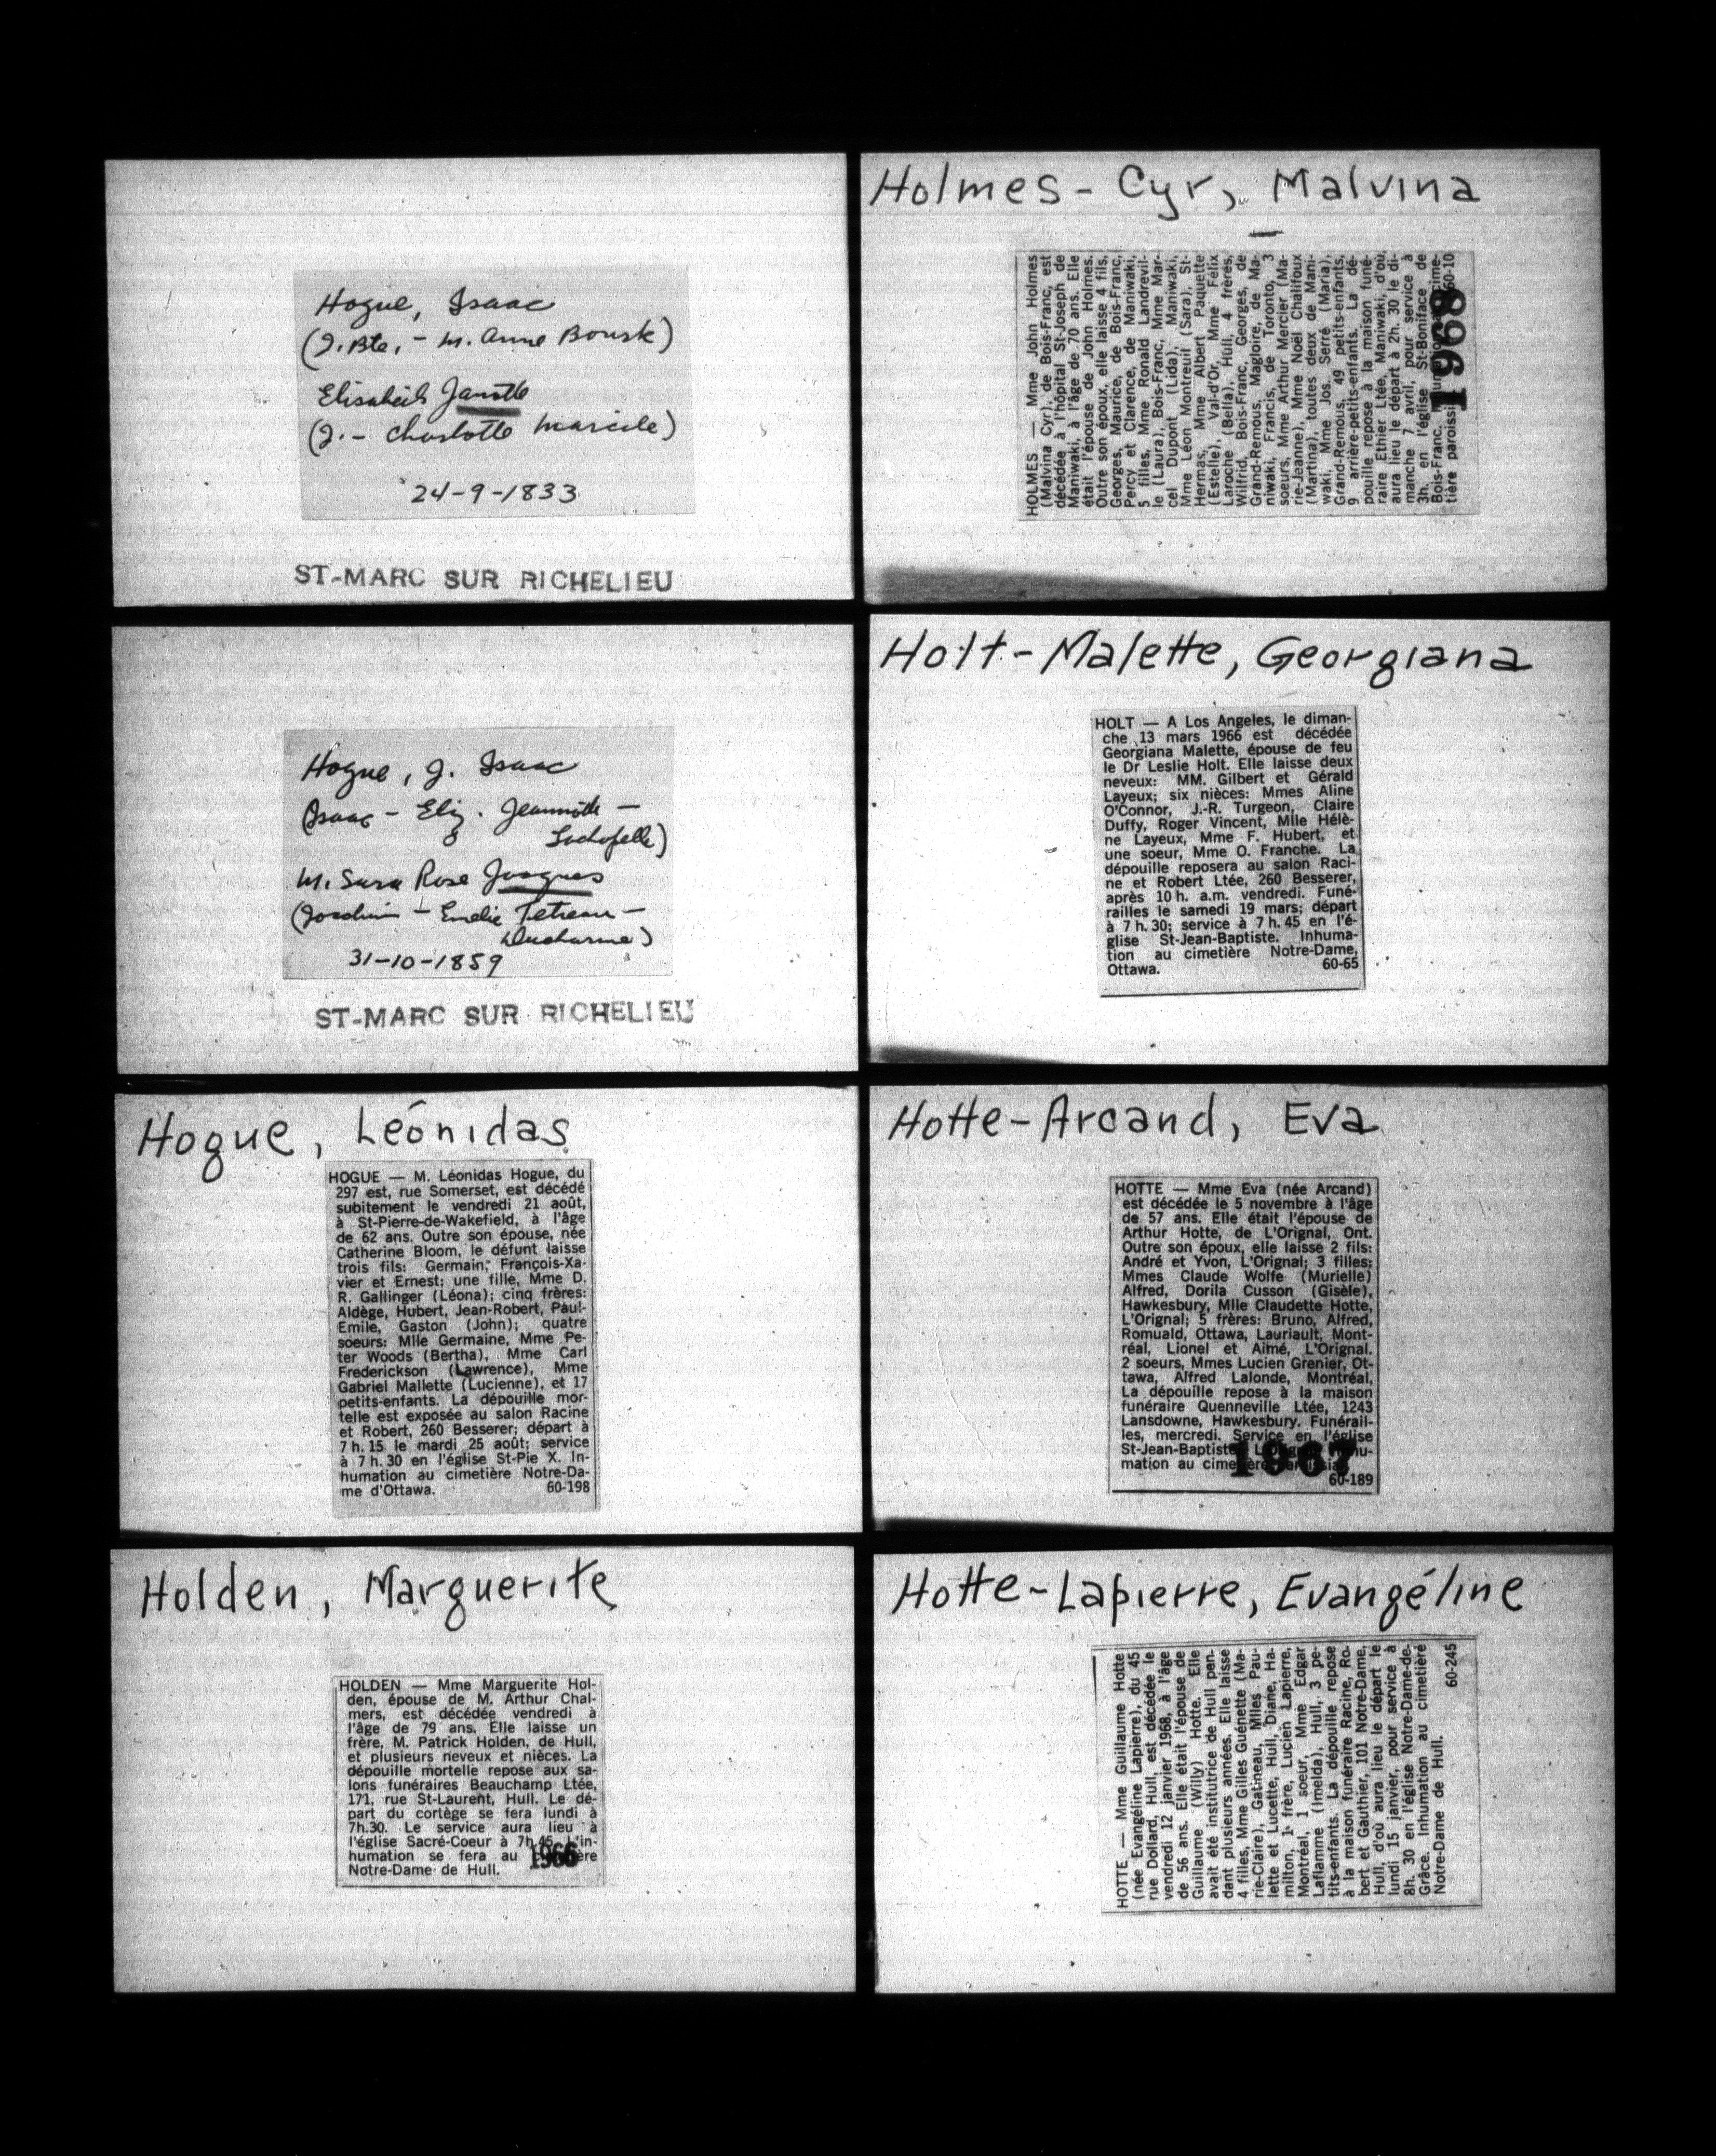 Hogue, Isaac
(J. Bte, - M. Anne Bousk)
Elisabeth Janotte
(J. - Charlotte Marcile)
24-9-1833
ST-MARC SUR RICHELIEU
Hogue, J. Isaac
(Isaac - Eliz. Jeannotte -
Lachapelle)
M. Sara Rose Jacques
(Joachim - Emelie Tetreau -
Ducharme)
31-10-1859
ST-MARC SUR RICHELIEU
Hogue, Léonidas
HOGUE — M. Léonidas Hogue, du
297 est, rue Somerset, est décédé
subitement le vendredi 21 août,
à St-Pierre-de-Wakefield, à l'âge
de 62 ans. Outre son épouse, née
Catherine Bloom, le défunt laisse
trois fils: Germain, François-Xa-
vier et Ernest; une fille, Mme D.
R. Gallinger (Léona); cinq frères:
Aldège, Hubert, Jean-Robert, Paul-
Emile, Gaston (John); quatre
soeurs: Mlle Germaine, Mme Pe-
ter Woods (Bertha), Mme Carl
Frederickson (Lawrence), Mme
Gabriel Mallette (Lucienne), et 17
petits-enfants. La dépouille mor-
telle est exposée au salon Racine
et Robert, 260 Besserer; départ à
7 h. 15 le mardi 25 août; service
à 7 h. 30 en l'église St-Pie X. In-
humation au cimetière Notre-Da-
me d'Ottawa. 60-198
Holden, Marguerite
HOLDEN — Mme Marguerite Hol-
den, épouse de M. Arthur Chal-
mers, est décédée vendredi à
l'âge de 79 ans. Elle laisse un
frère, M. Patrick Holden, de Hull,
et plusieurs neveux et nièces. La
dépouille mortelle repose aux sa-
lons funéraires Beauchamp Ltée,
171, rue St-Laurent, Hull. Le dé-
part du cortège se fera lundi à
7h.30. Le service aura lieu à
l'église Sacré-Coeur à 7h.45. L'in-
humation se fera au cimetière
Notre-Dame de Hull.
1966
Holmes-Cyr, Malvina
HOLMES — Mme John Holmes
(Malvina Cyr), de Bois-Franc, est
décédée à l'hôpital St-Joseph de
Maniwaki, à l'âge de 70 ans. Elle
était l'épouse de John Holmes.
Outre son époux, elle laisse 4 fils,
Georges, Maurice, de Bois-Franc,
Percy et Clarence, de Maniwaki,
5 filles, Mme Ronald Landrevil-
le (Laura), Bois-Franc, Mme Mar-
cel Dupont (Lida), Maniwaki,
Mme Léon Montreuil (Sara), St-
Hermas, Mme Albert Paquette
(Estelle), Val-d'Or, Mme Félix
Laroche (Bella), Hull, 4 frères,
Wilfrid, Bois-Franc, Georges, de
Grand-Remous, Magloire, de Ma-
niwaki, Francis, de Toronto, 3
soeurs, Mme Arthur Mercier (Ma-
rie-Jeanne), Mme Noël Chalifoux
(Martina), toutes deux de Mani-
waki, Mme Jos. Serré (Maria),
Grand-Remous, 49 petits-enfants,
9 arrière-petits-enfants. La dé-
pouille repose à la maison funé-
raire Ethier Ltée, Maniwaki, d'où
aura lieu le départ à 2h. 30 le di-
manche 7 avril, pour service à
3h. en l'église St-Boniface de
Bois-Franc. Inhumation cime-
tière paroissial. 60-10
1968
Holt-Malette, Georgiana
HOLT — A Los Angeles, le diman-
che 13 mars 1966 est décédée
Georgiana Malette, épouse de feu
le Dr Leslie Holt. Elle laisse deux
neveux: MM. Gilbert et Gérald
Layeux; six nièces: Mmes Aline
O'Connor, J.-R. Turgeon, Claire
Duffy, Roger Vincent, Mlle Hélè-
ne Layeux, Mme F. Hubert, et
une soeur, Mme O. Franche. La
dépouille reposera au salon Raci-
ne et Robert Ltée, 260 Besserer,
après 10 h. a.m. vendredi. Funé-
railles le samedi 19 mars; départ
à 7 h. 30; service à 7 h. 45 en l'é-
glise St-Jean-Baptiste. Inhuma-
tion au cimetière Notre-Dame,
Ottawa. 60-65
Hotte-Arcand, Eva
HOTTE — Mme Eva (née Arcand)
est décédée le 5 novembre à l'âge
de 57 ans. Elle était l'épouse de
Arthur Hotte, de L'Orignal, Ont.
Outre son époux, elle laisse 2 fils:
André et Yvon, L'Orignal; 3 filles:
Mmes Claude Wolfe (Murielle)
Alfred, Dorila Cusson (Gisèle),
Hawkesbury, Mlle Claudette Hotte,
L'Orignal; 5 frères: Bruno, Alfred,
Romuald, Ottawa, Lauriault, Mont-
réal, Lionel et Aimé, L'Orignal.
2 soeurs, Mmes Lucien Grenier, Ot-
tawa, Alfred Lalonde, Montréal,
La dépouille repose à la maison
funéraire Quenneville Ltée, 1243
Lansdowne, Hawkesbury. Funérail-
les, mercredi. Service en l'église
St-Jean-Baptiste, L'Orignal. Inhu-
mation au cimetière paroissial.
60-189
1967
Hotte-Lapierre, Evangéline
HOTTE — Mme Guillaume Hotte
(née Evangéline Lapierre), du 45
rue Dollard, Hull, est décédée le
vendredi 12 janvier 1968, à l'âge
de 56 ans. Elle était l'épouse de
Guillaume (Willy) Hotte. Elle
avait été institutrice de Hull pen-
dant plusieurs années. Elle laisse
4 filles, Mme Gilles Guénette (Ma-
rie-Claire), Gatineau, Mlles Pau-
lette et Lucette, Hull, Diane, Ha-
milton, 1 frère, Lucien Lapierre,
Montréal, 1 soeur, Mme Edgar
Laflamme (Imelda), Hull, 3 pe-
tits-enfants. La dépouille repose
à la maison funéraire Racine, Ro-
bert et Gauthier, 101 Notre-Dame,
Hull, d'où aura lieu le départ le
lundi 15 janvier, pour service à
8h. 30 en l'église Notre-Dame-de-
Grâce. Inhumation au cimetière
Notre-Dame de Hull. 60-245